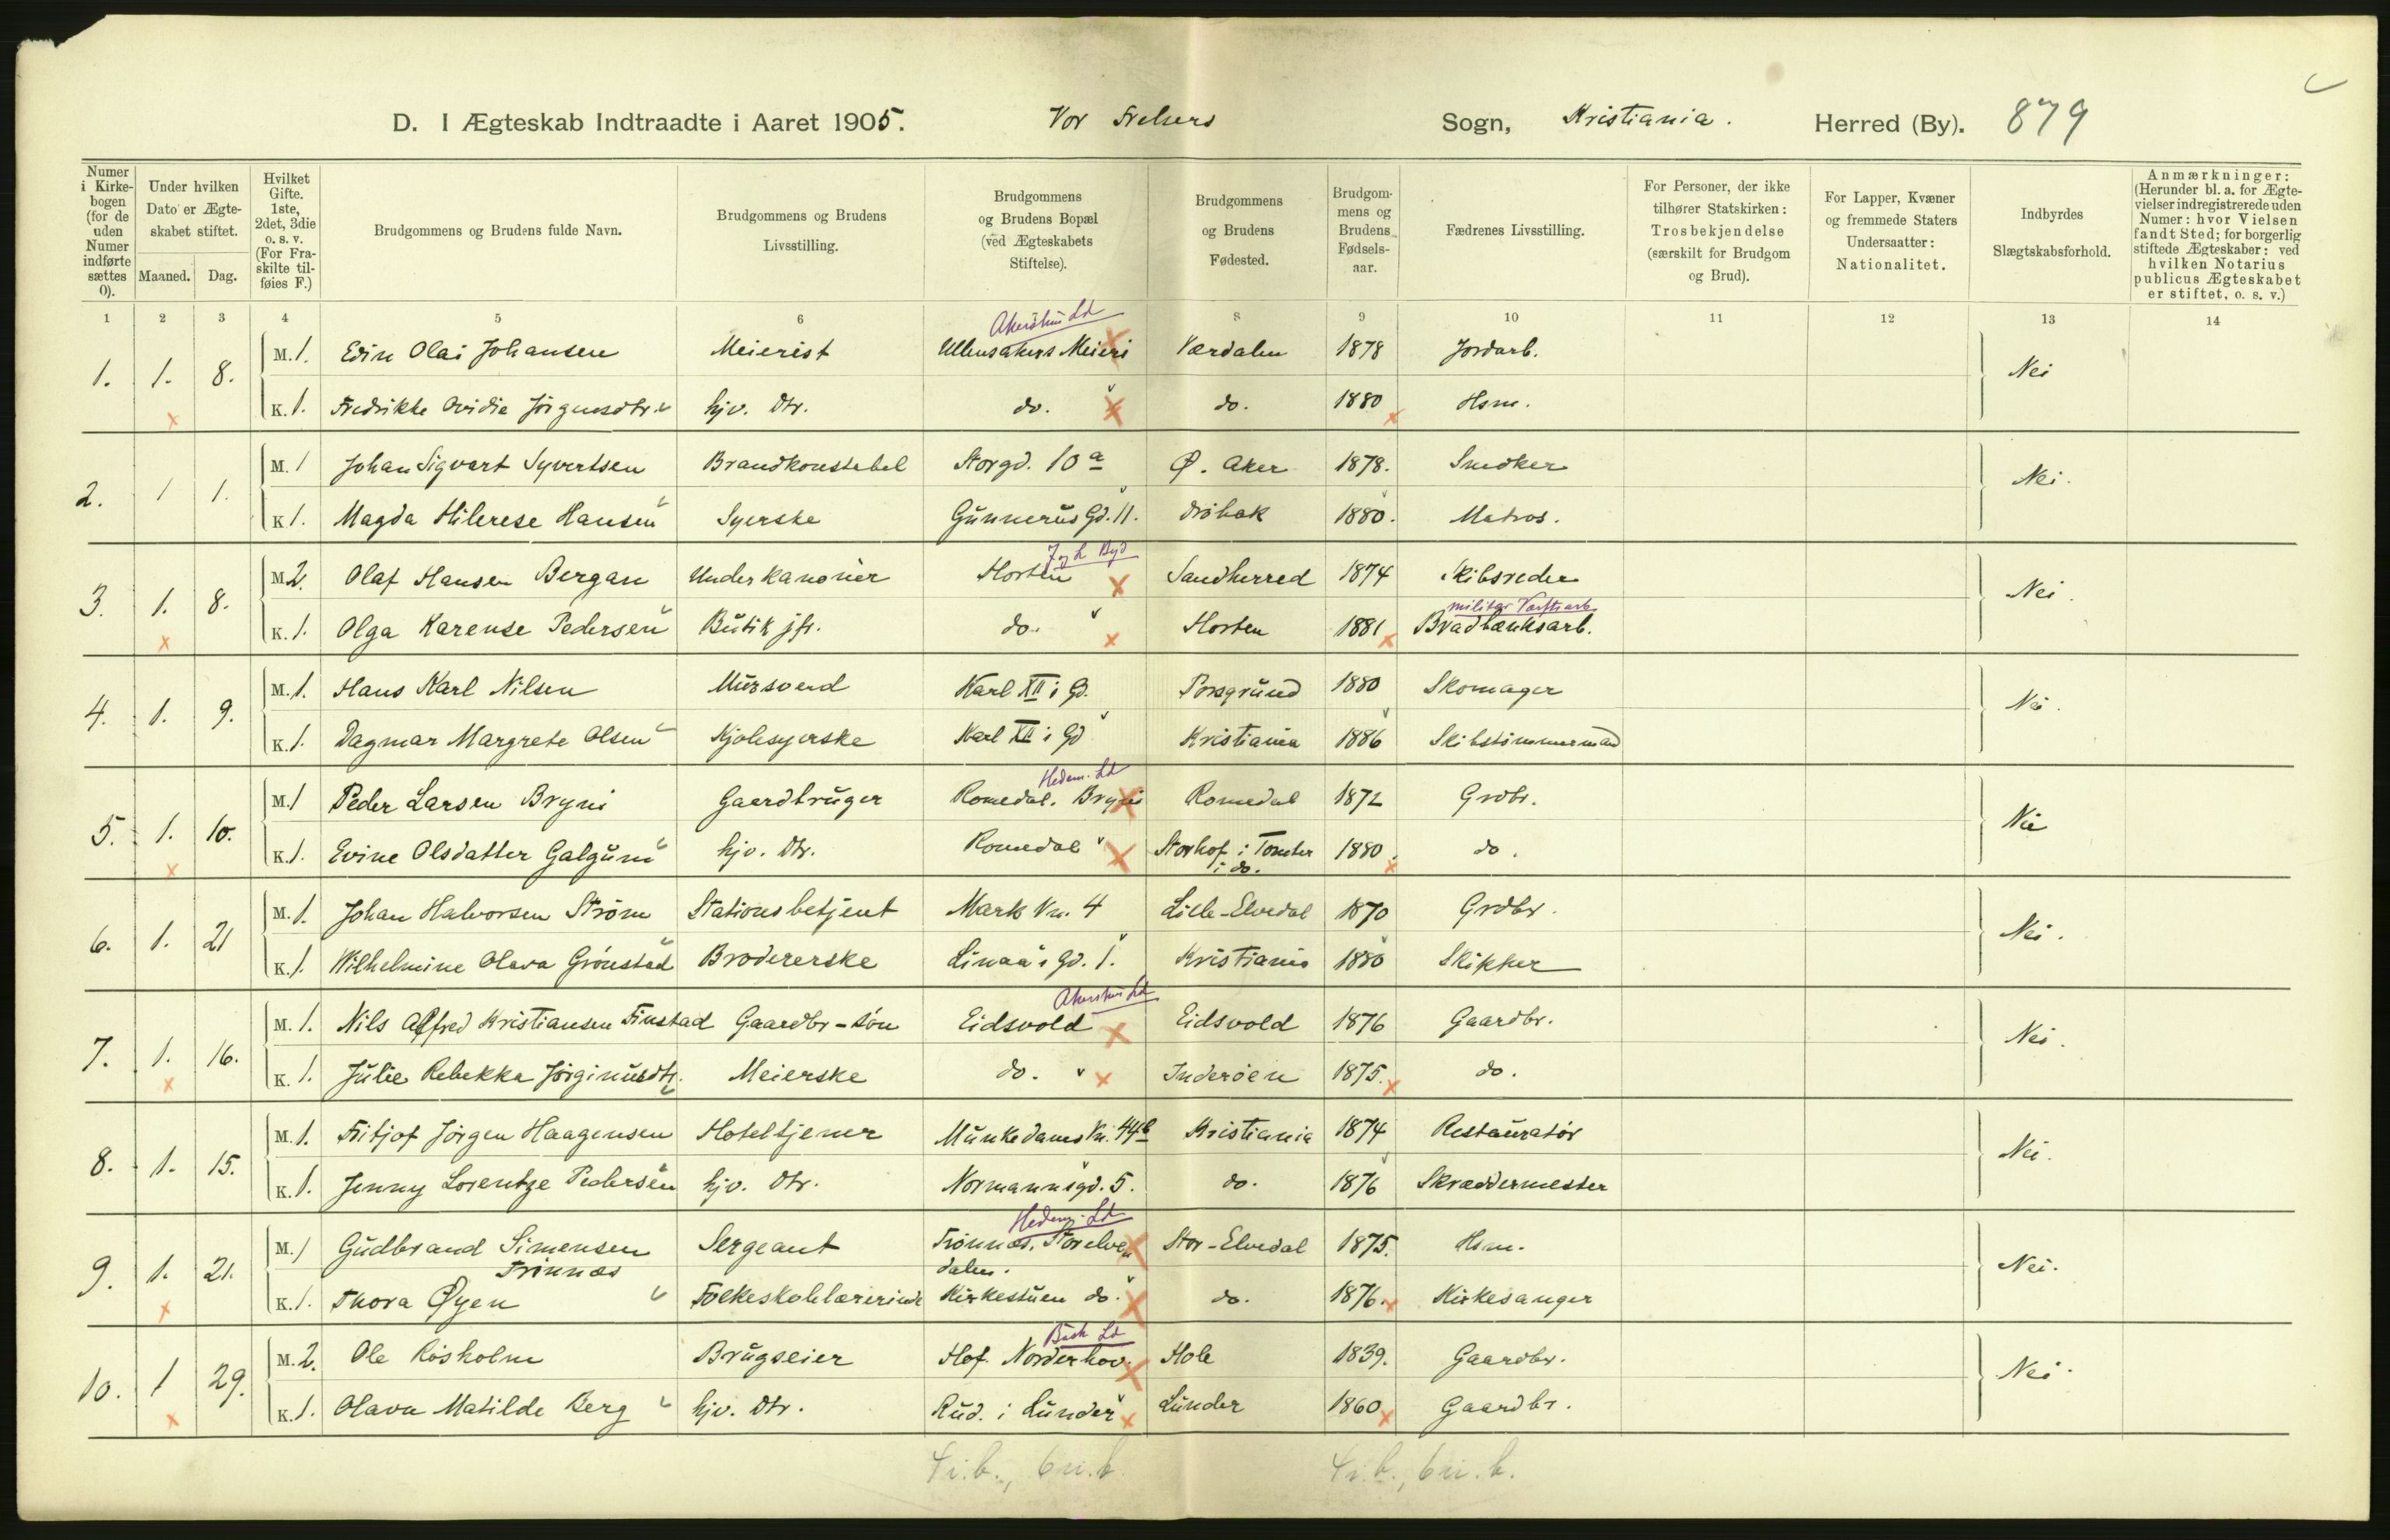 D. I Ægteskab Indtraadte i Aaret 1905. Vor Frelsers Sogn, Kristiania. Herred (By). 879
Numer i Kirkebogen (for de uden Numer indførte sættes 0).
Under hvilken Dato er Ægteskabet stiftet.
Maaned. Dag.
Hvilket Gifte. 1ste, 2det, 3die o. s. v. (For Fraskilte tilføies F.)
Brudgommens og Brudens fulde Navn.
Brudgommens og Brudens Livsstilling.
Brudgommens og Brudens Bopæl (ved Ægteskabets Stiftelse).
Brudgommens og Brudens Fødested.
Brudgommens og Brudens Fødselsaar.
Fædrenes Livsstilling.
For Personer, der ikke tilhører Statskirken: Trosbekjendelse (særskilt for Brudgom og Brud).
For Lapper, Kvæner og fremmede Staters Undersaatter: Nationalitet.
Indbyrdes Slægtskabsforhold.
Anmærkninger: (Herunder bl. a. for Ægtevielser indregistrerede uden Numer: hvor Vielsen fandt Sted; for borgerlig stiftede Ægteskaber: ved hvilken Notarius publicus Ægteskabet er stiftet, o. s. v.)
1 2 3 4 5 6 8 9 10 11 12 13 14
Akershus Ld
1. 1. 8. M. 1. Edin Olai Johansen Meierist Ullensakers Meieri Værdalen 1878 Jordarb. Nei
K. 1. Fredrikke Ovidie Jørgensdtr. hjv. Dtr. do. do. 1880 Hsm.
2. 1 1. M. 1 Johan Sigvart Syvertsen Brandkonstabel Storgd. 10 a Ø. Aker 1878. Snedker Nei.
K 1. Magda Hansen Syerske Gunnerus Gd. 11. Drøbak 1880. Matros.
3. 1. 8. M 2. Olaf Hansen Bergan Underkanoner Horten Sandherred 1874 Skibsreder Nei.
K. 1. Olga Karense Pedersen Butikjfr. do. Horten 1881 Bradbænksarb.
4. 1. 9. M. 1. Hans Karl Nilsen Mursvend Karl XII's Gd. Porsgrund 1880 Skomager Nei.
K. 1. Dagmar Margrete Olsen Kjolesyerske Karl XII's Gd Kristiania 1886 Skibstømmermand
Hedem. Ld
5. 1. 10. M. 1 Peder Larsen Bryni Gaardbruger Romedal. Bryni Romedal 1872 Grdbr. Nei
K. 1. Evine Olsdatter Galguni hjv. Dtr. Romedal Storhof i Tomter i do. 1880. do.
6. 1. 21 M. 1. Johan Halvorsen Strøm Stationsbetjent Mark Vn. 4 Lille-Elvedal 1870 Grdbr. Nei.
K. 1. Wilhelmine Olava Grønstad Brodererske Linaa's Gd. 1. Kristiania 1880 Skipper
Akershus Ld
7. 1. 16. M. 1. Nils Alfred Kristiansen Finstad Gaardbr-søn Eidsvold Eidsvold 1876 Gaardbr. Nei.
K. 1. Julie Rebekka Jørginusdtr. Meierske do. Inderøen 1875. do.
8. 1. 15. M. 1. Fritjof Jørgen Haagensen Hoteltjener Munkedams Vn. 44b Kristiania 1874 Restauratør Nei.
K. 1. Jenny Lorentze Pedersen hjv. Dtr. Normannsgd. 5. do. 1876 Skræddermester
Hedem. Ld
9. 1. 21. M. 1 Gudbrand Simensen Trønnæs Sergeant Trønnæs. Storelvedalen. Stor-Elvedal 1875. Hsm. Nei.
K. 1. Thora Øyen Folkeskolelærerinde Kirkestuen do. do. 1876. Kirkesanger
Busk Ld
10. 1 29. M. 2. Ole Røsholm Brugseier Hof. Norderhov. Hole 1839. Gaardbr. Nei.
K. 1. Olava Matilde Berg hjv. Dtr. Rud. i Lunder Lunder 1860 Gaardbr.
4 i.b., 6 u.b. 4 i.b., 6 u.b.